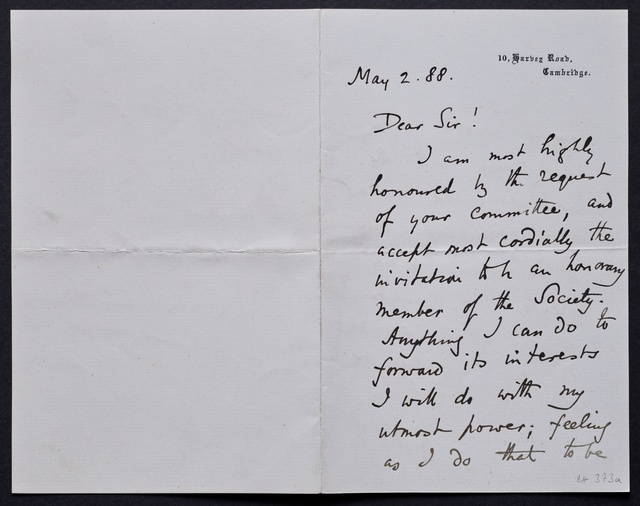 10, Harvey Road,
Cambridge.
May 2. 88.
Dear Sir!
I am most highly
honoured by the request
of your committee, and
accept most cordially the
invitation to be an honorary
member of the Society.
Anything I can do to
forward its interests
I will do with my
utmost power; feeling
as I do that to be
373a